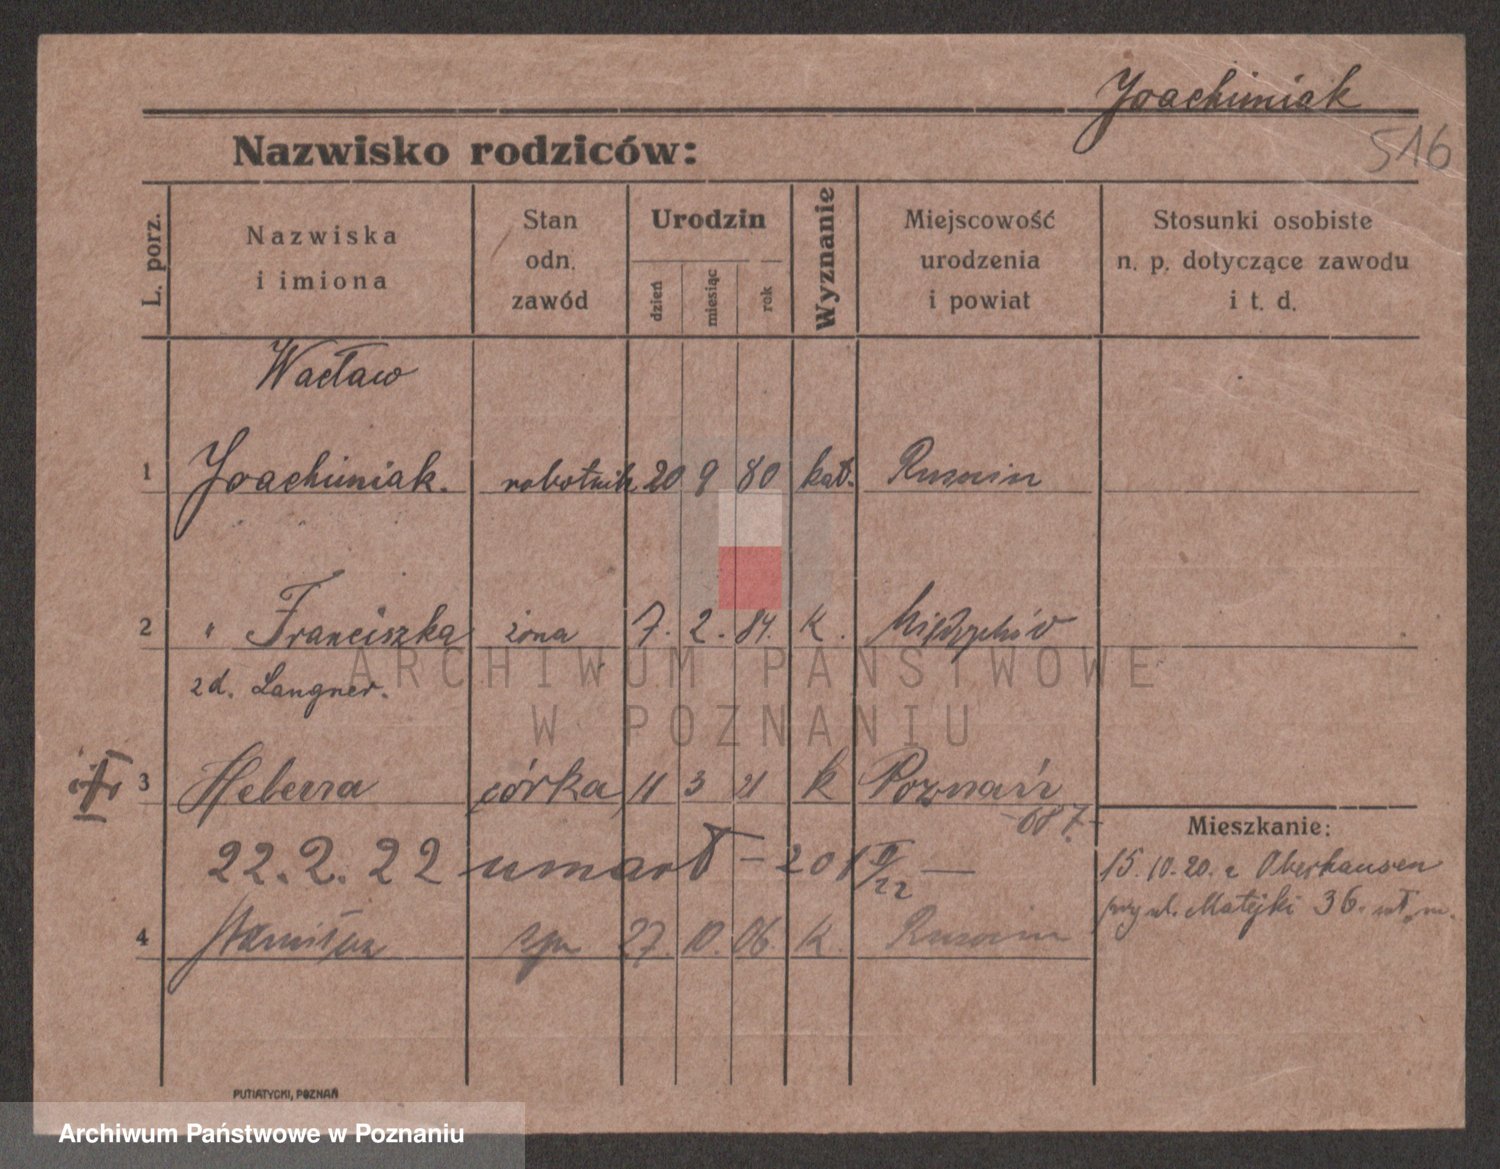 Joachimiak
516
Nazwisko rodziców:
L. porz.
Nazwiska
i imiona
Stan
odn.
zawód
Urodzin
dzień
miesiąc
rok
Wyznanie
Miejscowość
urodzenia
i powiat
Stosunki osobiste
n. p. dotyczące zawodu
i t. d.
Wacław
1 Joachimiak. robotnik 20 9 80 kat.
2 " Franciszka żona 7. 2. 84. K. Międzychód
zd. Langner.
3 Helena córka 11 3 21 k Poznań
687
22.2.22 umarł
4 Stanisław syn 27. 10. 06. K.
Mieszkanie:
15. 10. 20. z Oberhausen
przy ul. Matejki 36.
PUTIATYCKI, POZNAŃ
ARCHIWUM PAŃSTWOWE
W POZNANIU
Archiwum Państwowe w Poznaniu